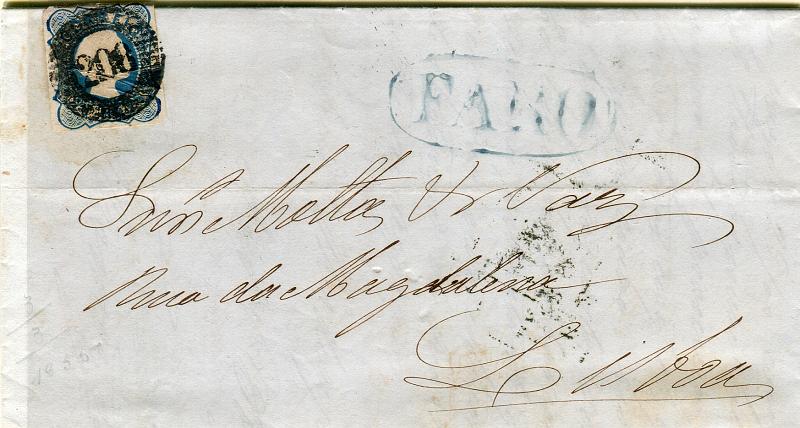 FARO
Snrs Mattas & Vaz
Rua da Magdalena
Lisboa